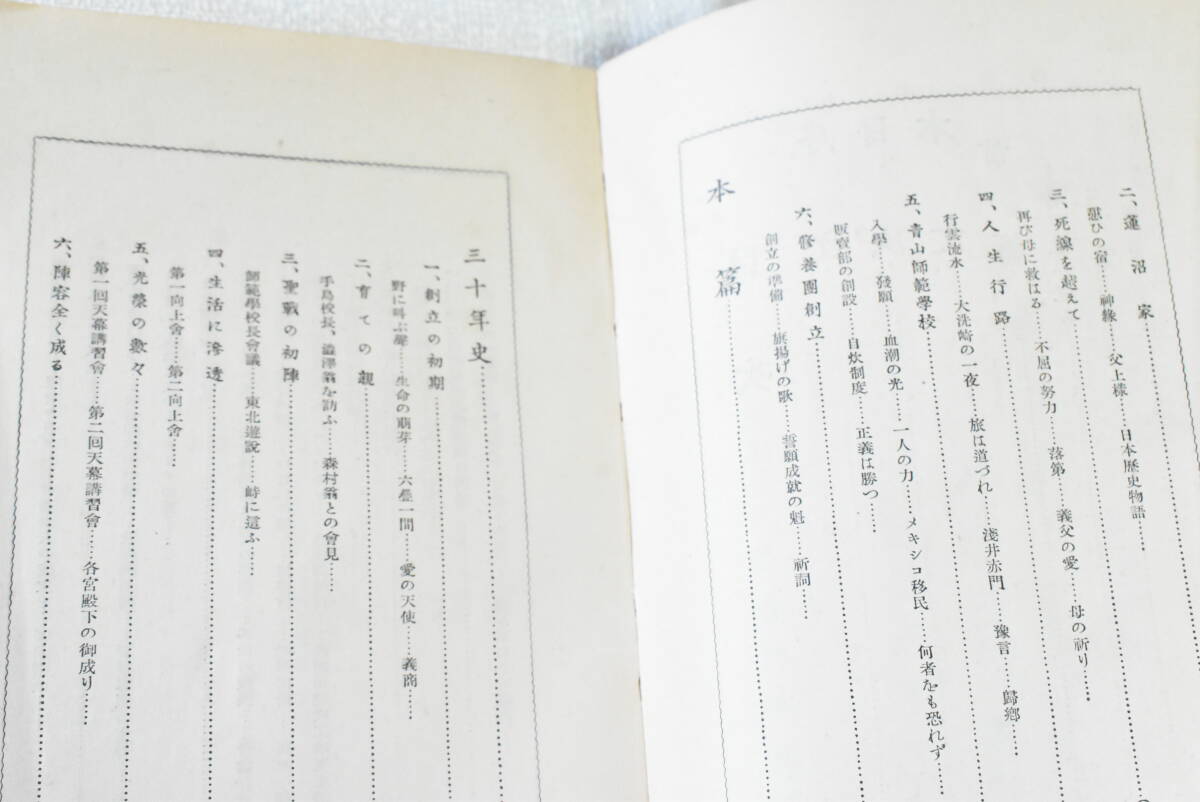 二、蓮沼家…………
憩ひの宿……神縁……父上様……日本歷史物語……
三、死線を越えて…………
再び母に救はる……不屈の努力……落第……義父の愛……母の祈り……
四、人生行路…………
行雲流水……大洗崎の一夜……旅は道づれ……淺井赤門……豫言……歸鄕……
五、靑山師範學校…………
入學……發願……血潮の光……一人の力……メキシコ移民……何者をも恐れず
販賣部の創設……自炊制度……正義は勝つ……
六、修養團創立…………
創立の準備……旗揚げの歌……誓願成就の魁……祈詞……
本篇…………
三十年史…………
一、創立の初期…………
野に叫ぶ聲……生命の萠芽……六疊一間……愛の天使……義商……
二、育ての親…………
手島校長、澁澤翁を訪ふ……森村翁との會見……
三、聖戰の初陣…………
師範學校長會議……東北遊說……峠に這ふ……
四、生活に滲透…………
第一向上會……第二向上會……
五、光榮の數々…………
第一回天幕講習會……第二回天幕講習會……各宮殿下の御成り……
六、陣容全く成る…………